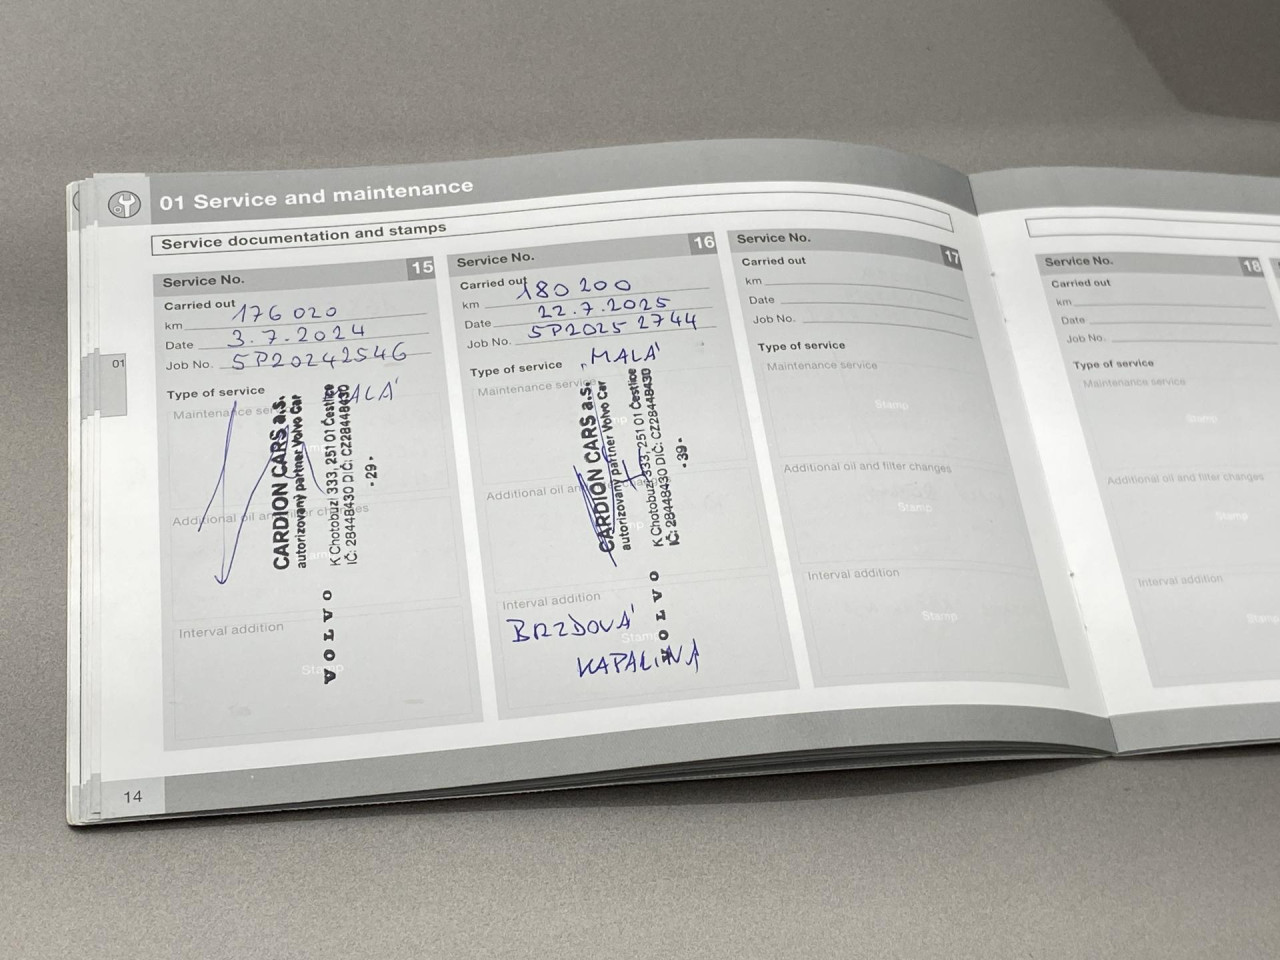 01 Service and maintenance
Service documentation and stamps
Service No. 15
Carried out
km 176 020
Date 3.7.2024
Job No. SP20242546
Type of service
MALÁ
Maintenance service
Additional oil and filter changes
Interval addition
Stamp
CARDION CARS a.s.
autorizovaný partner Volvo Car
K Chotobuzi 333, 251 01 Čestlice
IČ: 28448430 DIČ: CZ28448430
- 29 -
VOLVO
Service No. 16
Carried out
km 180 200
Date 22.7.2025
Job No. SP2025 2744
Type of service
MALÁ
Maintenance service
Additional oil and filter changes
Interval addition
Stamp
CARDION CARS a.s.
autorizovaný partner Volvo Car
K Chotobuzi 333, 251 01 Čestlice
IČ: 28448430 DIČ: CZ28448430
- 39 -
VOLVO
BRZDOVÁ
KAPALINA
Service No. 17
Carried out
km
Date
Job No.
Type of service
Maintenance service
Stamp
Additional oil and filter changes
Stamp
Interval addition
Stamp
Service No. 18
Carried out
km
Date
Job No.
Type of service
Maintenance service
Stamp
Additional oil and filter changes
Stamp
Interval addition
Stamp
01
14